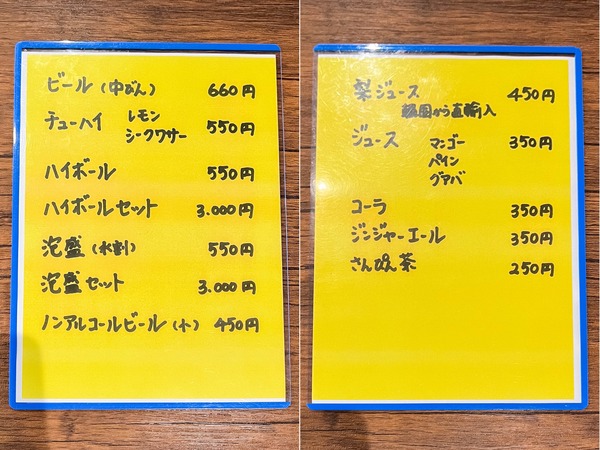 ビール (中びん) 660円
チューハイ レモン 550円
シークワサー
ハイボール 550円
ハイボールセット 3.000円
泡盛 (水割) 550円
泡盛セット 3.000円
ノンアルコールビール (小) 450円
梨ジュース 450円
韓国から直輸入
ジュース マンゴー 350円
パイン
グアバ
コーラ 350円
ジンジャーエール 350円
さんぴん茶 250円